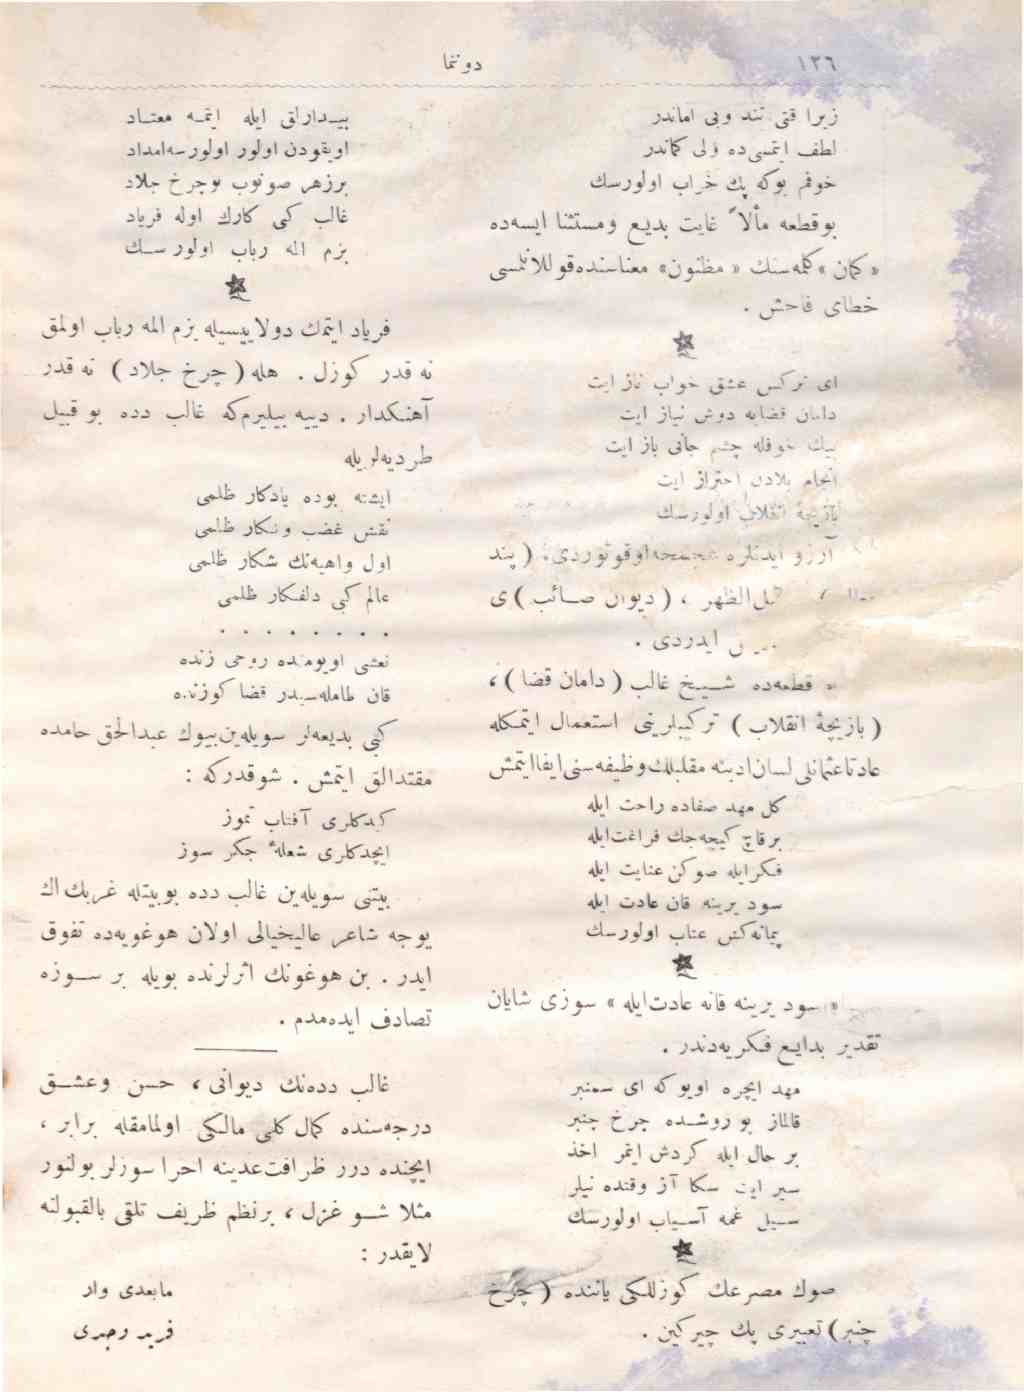 ١٣٦
دوننما
زیرا قتی تند وبی اماندر
لطف ایتمسی‌ده ولی کماندر
خوفم بوکه پك خراب اولورسك
بوقطعه مألاً غایت بدیع ومستثنا ایسه‌ده
«کمان» کلمه‌سنك «مظنون» معناسنده‌قوللانلمسی
خطای فاحش .
ای نرکس عشق خواب ناز ایت
دامان قضایه دوش نیاز ایت
بیك خوفله چشم جانی باز ایت
انجام بلادن احتراز ایت
بازیچهٔ انقلاب اولورسك
آرزو ایدنلره اوقوتوردی، (پند
الظهر ، (دیوان صائب) ی
ایدردی .
قطعه‌ده شیخ غالب (دامان قضا) ،
(بازیچهٔ انقلاب) ترکیبلرینی استعمال ایتمکله
عادتا عثمانلی لسان ادبنه مقلبلك وظیفه‌سنی ایفا ایتمش
کل مهد صفاده راحت ایله
برقاچ کیجه‌جك فراغت‌ایله
فکرایله صوکن عنایت ایله
سود یرینه قان عادت ایله
پیمانه‌کش عتاب اولورسك
«سود یرینه قانه عادت‌ایله» سوزی شایان
تقدیر بدایع فکریه‌دندر .
مهد ایچره اویو که ای سمنبر
قالماز بو روشده چرخ چنبر
بر حال ایله کردش ایتمر اخذ
سیر ایت سکا آز وقتده نیلر
سیل غمه آسیاب اولورسك
صوك مصرعك کوزللکی یاننده (چرخ
چنبر) تعبیری پك چیرکین .
بیدارلق ایله ایتمه معتاد
اویقودن اولور اولورسه‌امداد
برزهر صونوب بوچرخ جلاد
غالب کبی کارك اوله فریاد
بزم المه رباب اولورسك
فریاد ایتمك دولاییسیله بزم المه رباب اولمق
نه قدر کوزل . هله (چرخ جلاد) نه قدر
آهنکدار . دییه بیلیرم‌که غالب دده بو قبیل
طردیه‌لریله
ایشته بوده یادکار ظلمی
نقش غضب ونکار ظلمی
اول واهبه‌نك شکار ظلمی
عالم کبی دلفکار ظلمی
. . . . . . . .
نعشی اویومنده روحی زنده
قان طامله‌سیدر قضا کوزنده
کبی بدیعه‌لر سویله‌ین‌بیوك عبدالحق حامده
مقتدالق ایتمش . شوقدرکه :
کیدکلری آفتاب تموز
ایچدکلری شعلهٔ جکر سوز
بیتنی سویله‌ین غالب دده بوبیتله غربك‌اك
یوجه شاعر عالیخیالی اولان هوغویه‌ده تفوق
ایدر . بن هوغونك اثرلرنده بویله بر سوزه
تصادف ایده‌مدم .
غالب دده‌نك دیوانی ، حسن وعشق
درجه‌سنده کمال کلی مالکی اولمامقله برابر ،
ایچنده درر ظرافت‌عدینه احرا سوزلر بولنور
مثلا شو غزل ، برنظم ظریف تلقی بالقبولنه
لایقدر :
مابعدی وار
فرید وجدی